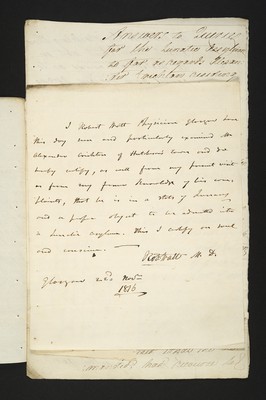 Answers to Queries
for the Lunatic Asylum
as far as regards
I Robert Watt Physician Glasgow have
this day seen and particularly examined Mr
Alexander of Hutchesons town and do
hereby certify, as well from my present visit
as from my former knowledge of his com,
plaints, that he is in a state of Insanity
and a proper object to be admitted into
a Lunatic asylum. This I certify on soul
and conscience. —
Rob Watt M. D.
Glasgow 22d Novr
1816